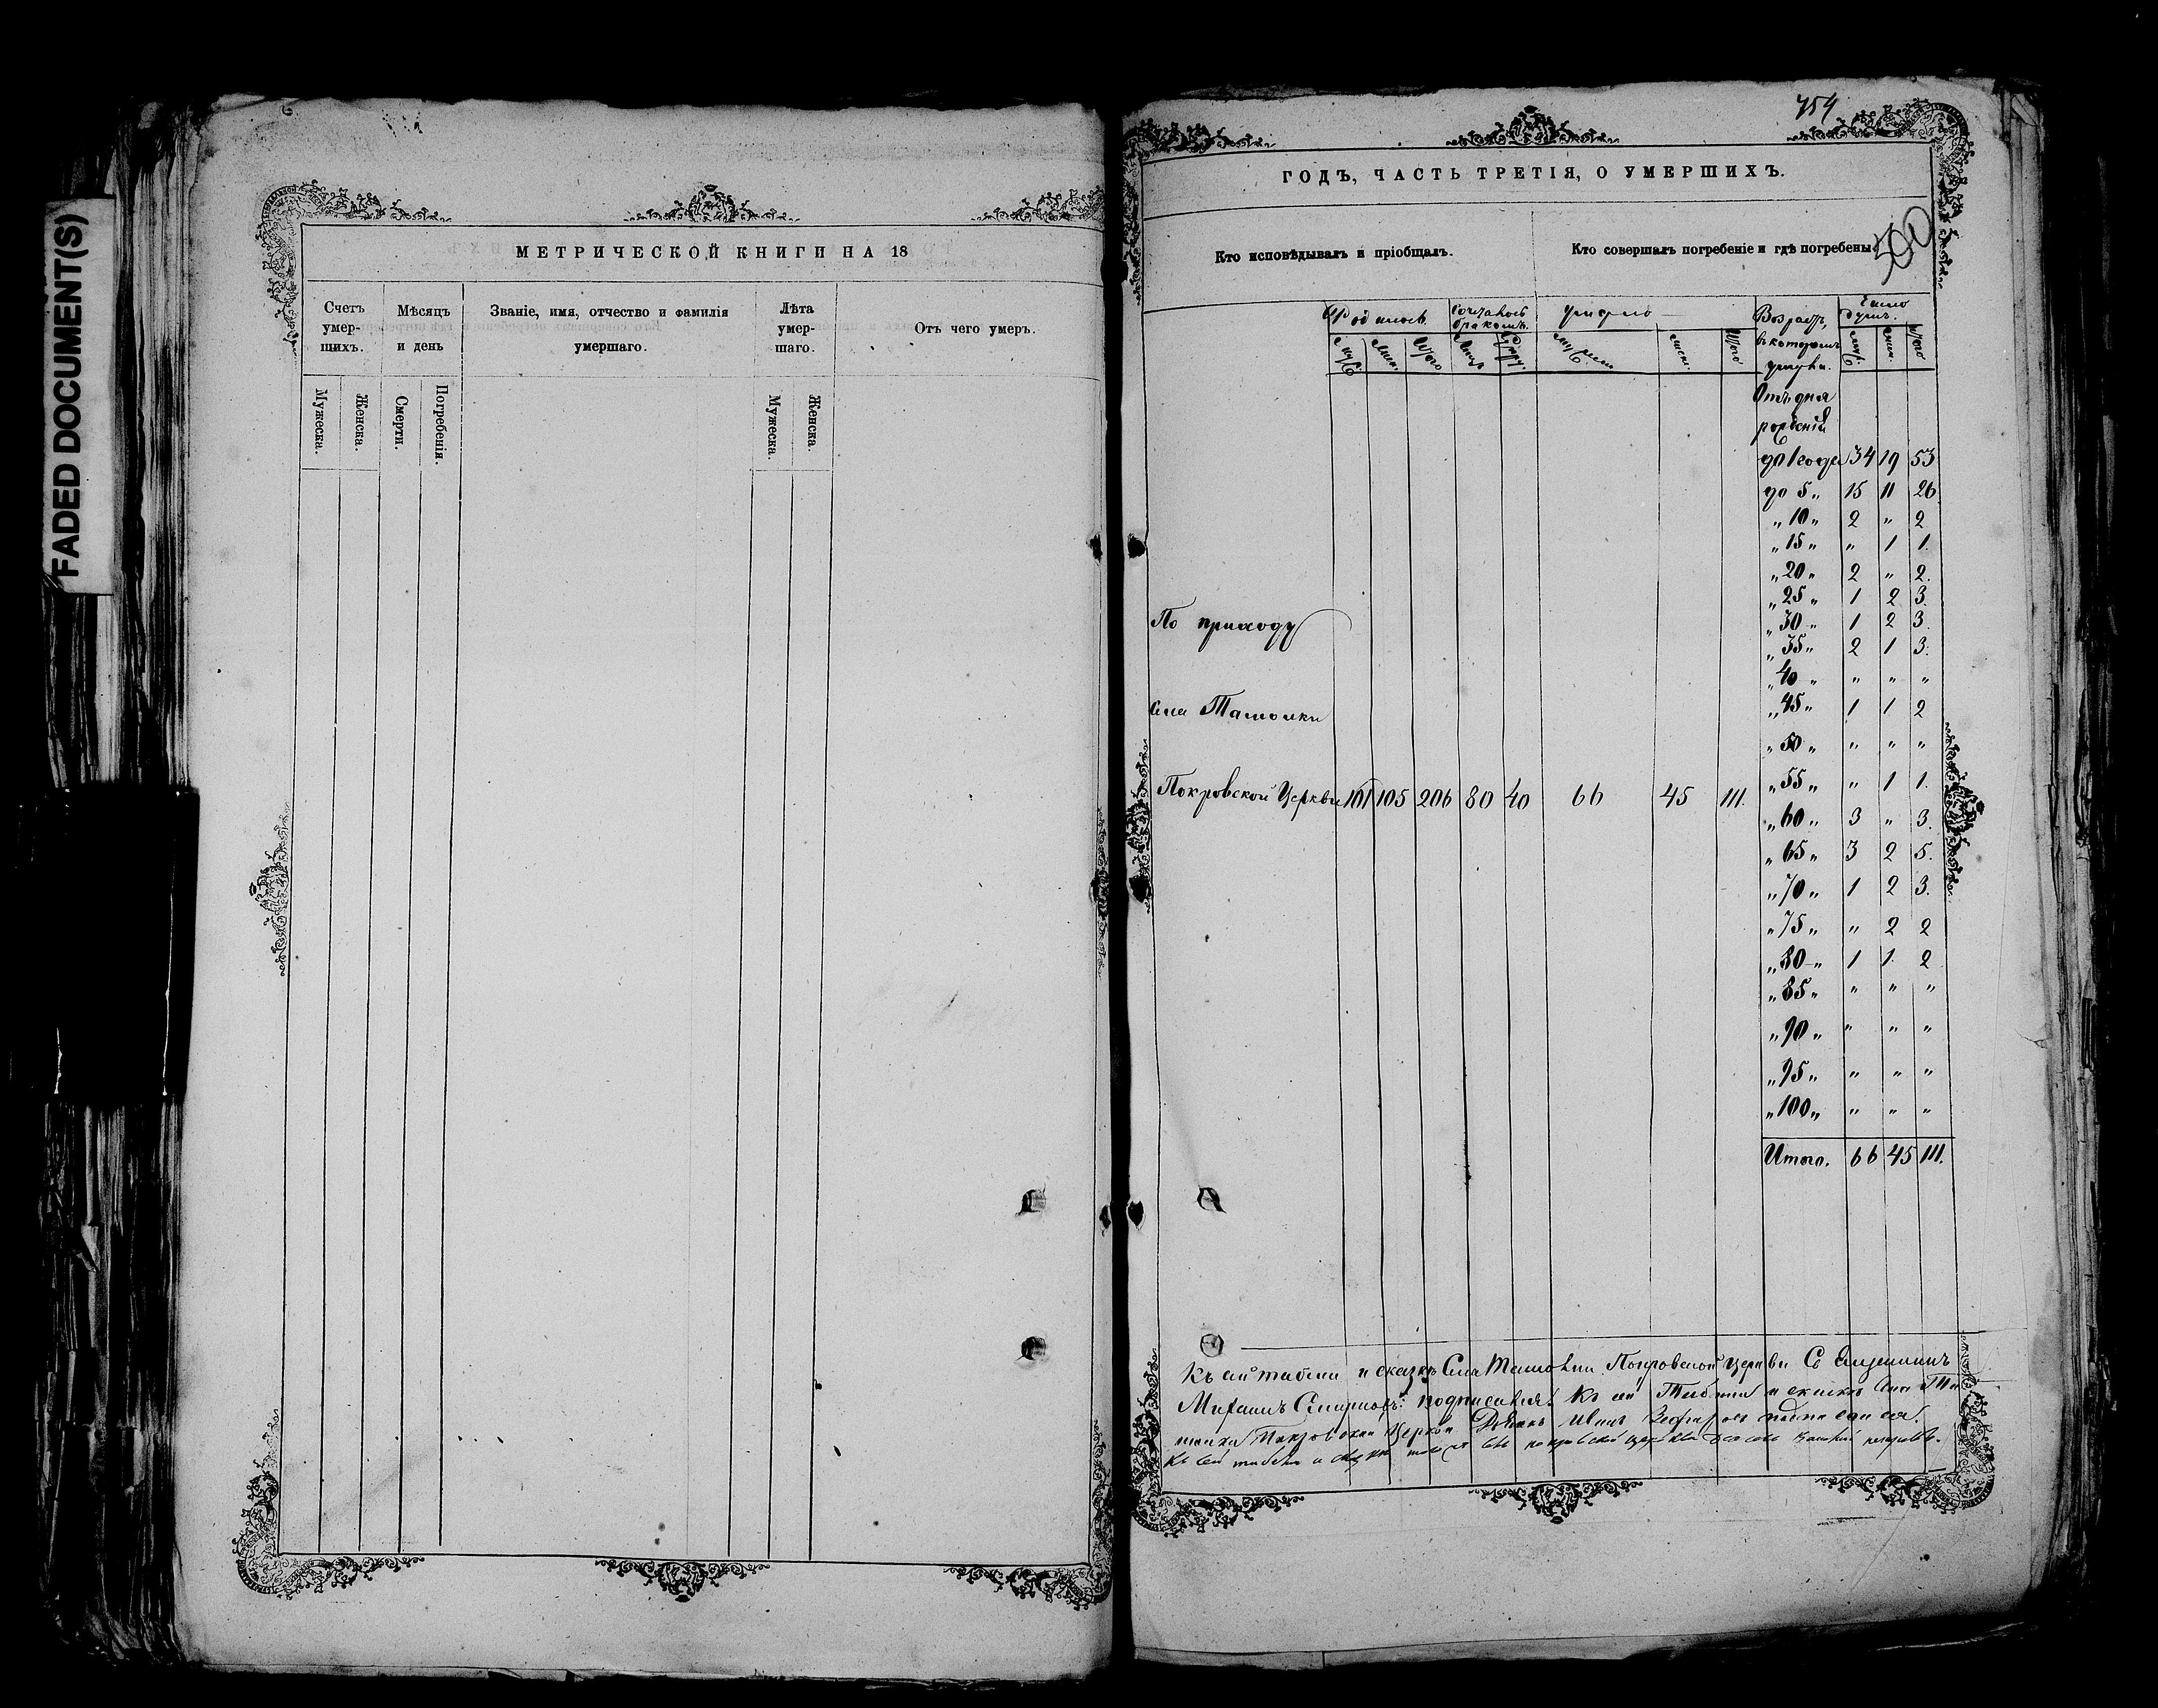 FADED DOCUMENT(S)
МЕТРИЧЕСКОЙ КНИГИ НА 18
Счетъ умер-шихъ.
Мѣсяцъ и день
Званіе, имя, отчество и фамилія умершаго.
Лѣта умер-шаго.
Отъ чего умеръ.
Мужеска.
Женска.
Смерти.
Погребенія.
Мужеска.
Женска.
754
ГОДЪ, ЧАСТЬ ТРЕТІЯ, О УМЕРШИХЪ.
Кто исповѣдывалъ и пріобщалъ.
Кто совершалъ погребеніе и гдѣ погребены.
500
Родилось. Сочталось бракомъ. Умерло Возрастъ, въ которомъ умерли. Число душъ.
Муж. Жен. Итого Лицъ Супру. Муж. Жен. Итого Муж. Жен. Итого
Отъ дня
рожденія
до 1 года 34 19 53
до 5 „ 15 11 26
„ 10 „ 2 „ 2
„ 15 „ „ 1 1.
„ 20 „ 2 „ 2.
„ 25 „ 1 2 3.
По приходу
„ 30 „ 1 2 3.
„ 35 „ 2 1 3.
„ 40 „ „ „ „
села
„ 45 „ 1 1 2
„ 50 „ „ „ „
„ 55 „ „ 1 1.
Покровской Церкви 101 105 206 80 40 66 45 111.
„ 60 „ 3 „ 3.
„ 65 „ 3 2 5.
„ 70 „ 1 2 3.
„ 75 „ „ 2 2
„ 80 „ 1 1. 2
„ 85 „ „ „ „
„ 90 „ „ „ „
„ 95 „ „ „ „
„ 100 „ „ „ „
Итого. 66 45 111.
Къ сей табели и сказкѣ Села Покровской церкви Священникъ
Михаилъ Смирновъ подписался. Къ сей Табели и сказкѣ села
Покровской Церкви Дьякъ Иванъ подписался.
Къ сей табели и сказкѣ Покровской церкви